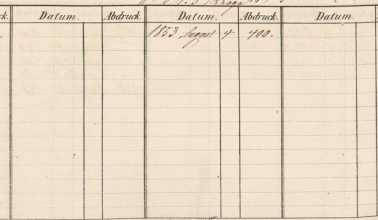 Datum. Abdruck. Datum. Abdruck. Datum.
1853 August 4. 400.